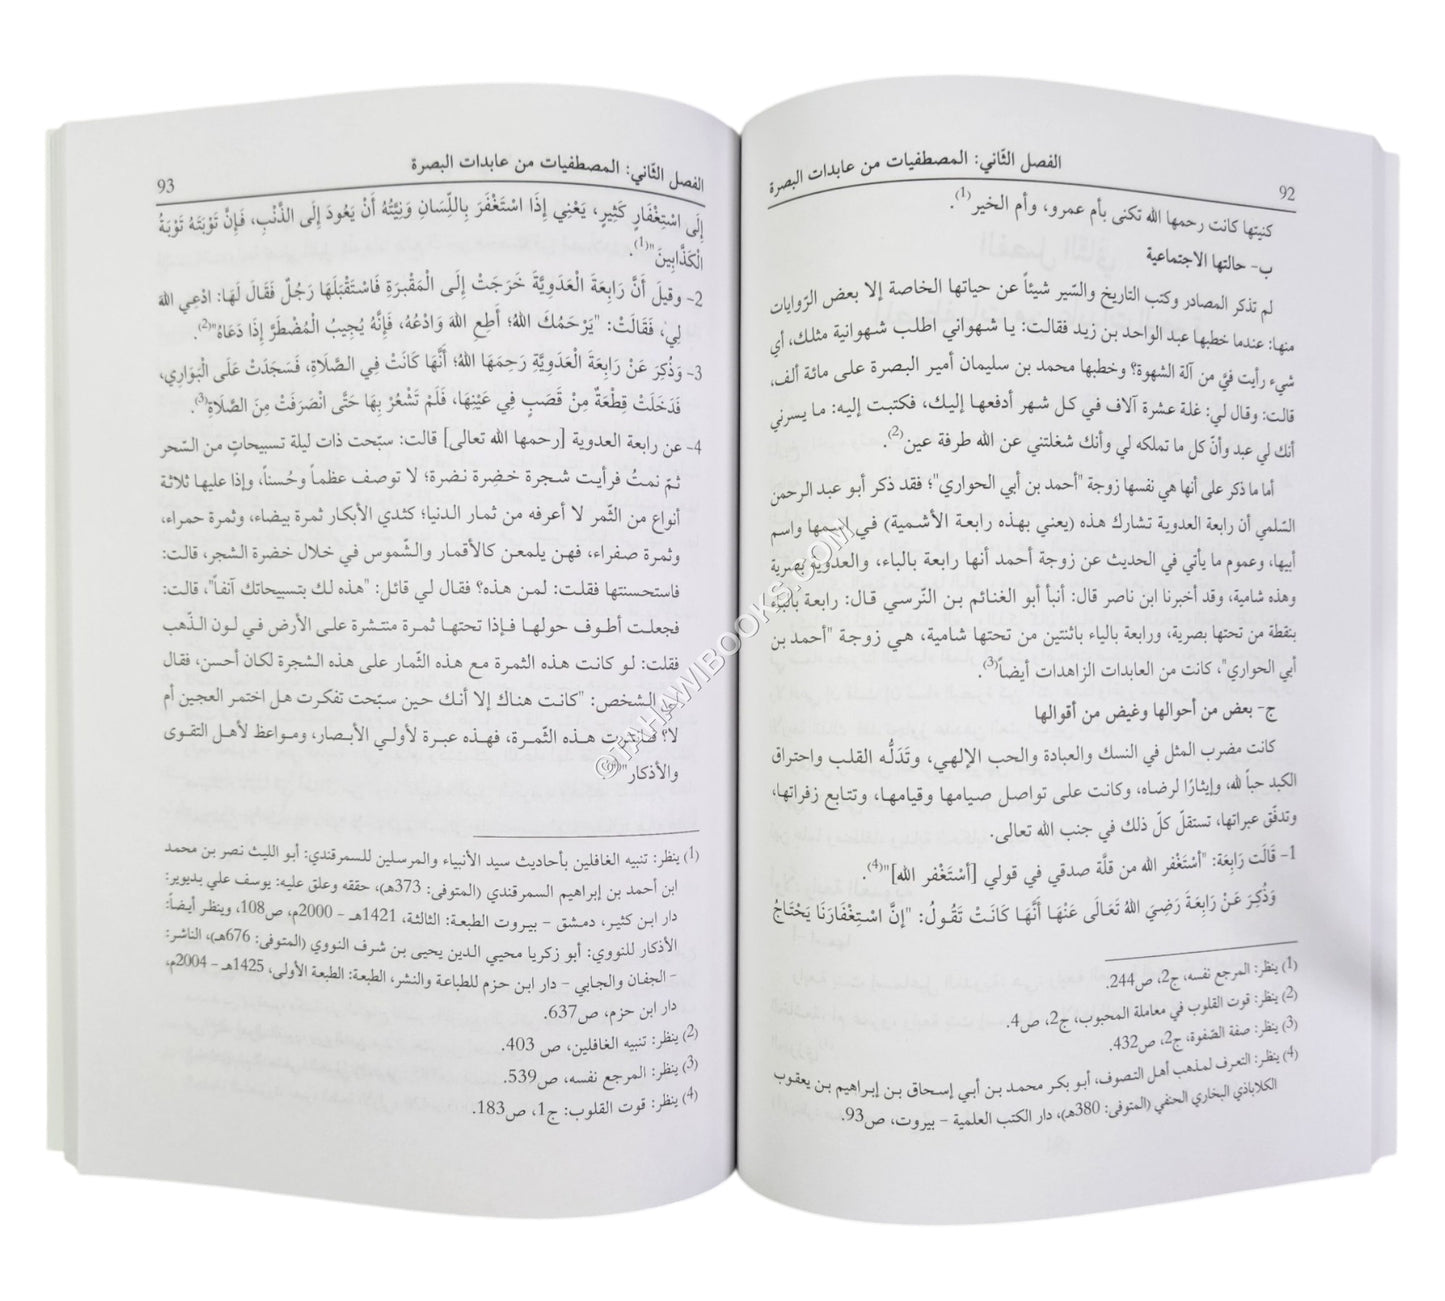 92
الفصل الثّاني: المصطفيات من عابدات البصرة
كنيتها كانت رحمها الله تكنى بأم عمرو، وأم الخير(1).
ب- حالتها الاجتماعية
لم تذكر المصادر وكتب التاريخ والسّير شيئاً عن حياتها الخاصة إلا بعض الرّوايات
منها: عندما خطبها عبد الواحد بن زيد فقالت: يا شهواني اطلب شهوانية مثلك، أي
شيء رأيت فيَّ من آلة الشهوة؟ وخطبها محمد بن سليمان أمير البصرة على مائة ألف،
قالت: وقال لي: غلة عشرة آلاف في كل شهر أدفعها إليك، فكتبت إليه: ما يسرني
أنك لي عبد وأنّ كل ما تملكه لي وأنك شغلتني عن الله طرفة عين(2).
أما ما ذكر على أنها هي نفسها زوجة "أحمد بن أبي الحواري"؛ فقد ذكر أبو عبد الرحمن
السّلمي أن رابعة العدوية تشارك هذه (يعني بهذه رابعة الأشمية) في اسمها واسم
أبيها، وعموم ما يأتي في الحديث عن زوجة أحمد أنها رابعة بالباء، والعدوية بصرية
وهذه شامية، وقد أخبرنا ابن ناصر قال: أنبأ أبو الغنائم بن النّرسي قال: رابعة بالباء
بنقطة من تحتها بصرية، ورابعة بالياء باثنتين من تحتها شامية، هي زوجة "أحمد بن
أبي الحواري"، كانت من العابدات الزاهدات أيضاً(3).
ج- بعض من أحوالها وغيض من أقوالها
كانت مضرب المثل في النسك والعبادة والحب الإلهي، وتَدَلُّه القلب واحتراق
الكبد حباً لله، وإيثارًا لرضاه، وكانت على تواصل صيامها وقيامها، وتتابع زفراتها،
وتدفّق عبراتها، تستقلّ كلّ ذلك في جنب الله تعالى.
1- قَالَت رَابِعَة: "أسْتَغْفر الله من قلَّة صدقي في قولي [أسْتَغْفر الله]"(4).
وَذُكِرَ عَنْ رَابِعَةَ رَضِيَ اللهُ تَعَالَى عَنْهَا أَنَّهَا كَانَتْ تَقُولُ: "إنَّ اسْتِغْفَارَنَا يَحْتَاجُ
(1) ينظر: المرجع نفسه، ج2، ص244.
(2) ينظر: قوت القلوب في معاملة المحبوب، ج2، ص4.
(3) ينظر: صفة الصّفوة، ج2، ص432.
(4) ينظر: التعرف لمذهب أهل التصوف، أبو بكر محمد بن أبي إسحاق بن إبراهيم بن يعقوب
الكلاباذي البخاري الحنفي (المتوفى: 380هـ)، دار الكتب العلمية – بيروت، ص93.
الفصل الثّاني: المصطفيات من عابدات البصرة
93
إلَى اسْتِغْفَارٍ كَثِيرٍ، يَعْنِي إذَا اسْتَغْفَرَ بِاللِّسَانِ وَنِيَّتُهُ أَنْ يَعُودَ إلَى الذَّنْبِ، فَإِنَّ تَوْبَتَهُ تَوْبَةُ
الْكَذَّابِينَ"(1).
2- وقيلَ أَنَّ رَابِعَةَ الْعَدَوِيَّةَ خَرَجَتْ إلَى الْمَقْبَرَةِ فَاسْتَقْبَلَهَا رَجُلٌ فَقَالَ لَهَا: ادْعِي اللهَ
لِي، فَقَالَتْ: "يَرْحَمُكَ اللهُ؛ أَطِعِ اللهَ وَادْعُهُ، فَإِنَّهُ يُجِيبُ الْمُضْطَرَّ إذَا دَعَاهُ"(2).
3- وَذُكِرَ عَنْ رَابِعَةَ الْعَدَوِيَّةِ رَحِمَهَا اللهُ؛ أَنَّهَا كَانَتْ فِي الصَّلَاةِ، فَسَجَدَتْ عَلَى الْبَوَارِي،
فَدَخَلَتْ قِطْعَةٌ مِنْ قَصَبٍ فِي عَيْنِهَا، فَلَمْ تَشْعُرْ بِهَا حَتَّى انْصَرَفَتْ مِنَ الصَّلَاةِ(3).
4- عن رابعة العدوية [رحمها الله تعالى] قالت: سبّحت ذات ليلة تسبيحاتٍ من السّحر
ثمّ نمتُ فرأيت شجرة خضِرة نضرة؛ لا توصف عظماً وحُسناً، وإذا عليها ثلاثة
أنواع من الثّمر لا أعرفه من ثمار الدنيا؛ كثدي الأبكار ثمرة بيضاء، وثمرة حمراء،
وثمرة صفراء، فهن يلمعن كالأقمار والشّموس في خلال خضرة الشجر، قالت:
فاستحسنتها فقلت: لمن هذه؟ فقال لي قائل: "هذه لك بتسبيحاتك آنفاً"، قالت:
فجعلت أطوف حولها فإذا تحتها ثمرة منتشرة على الأرض في لون الذّهب
فقلت: لو كانت هذه الثمرة مع هذه الثّمار على هذه الشجرة لكان أحسن، فقال
الشخص: "كانت هناك إلا أنك حين سبّحت تفكرت هل اختمر العجين أم
لا؟ هذه الثّمرة، فهذه عبرة لأولي الأبصار، ومواعظ لأهل التقوى
والأذكار"
(1) ينظر: تنبيه الغافلين بأحاديث سيد الأنبياء والمرسلين للسمرقندي: أبو الليث نصر بن محمد
ابن أحمد بن إبراهيم السمرقندي (المتوفى: 373هـ)، حققه وعلق عليه: يوسف علي بديوير:
دار ابن كثير، دمشق – بيروت الطبعة: الثالثة، 1421هـ – 2000م، ص108، وينظر أيضاً:
الأذكار للنووي: أبو زكريا محيي الدين يحيى بن شرف النووي (المتوفى: 676هـ)، الناشر:
– الجفان والجابي – دار ابن حزم للطباعة والنشر، الطبعة: الطبعة الأولى، 1425هـ – 2004م،
دار ابن حزم، ص637.
(2) ينظر: تنبيه الغافلين، ص 403.
(3) ينظر: المرجع نفسه، ص539.
(4) ينظر: قوت القلوب: ج1، ص183.
©TAHAWIBOOKS.COM